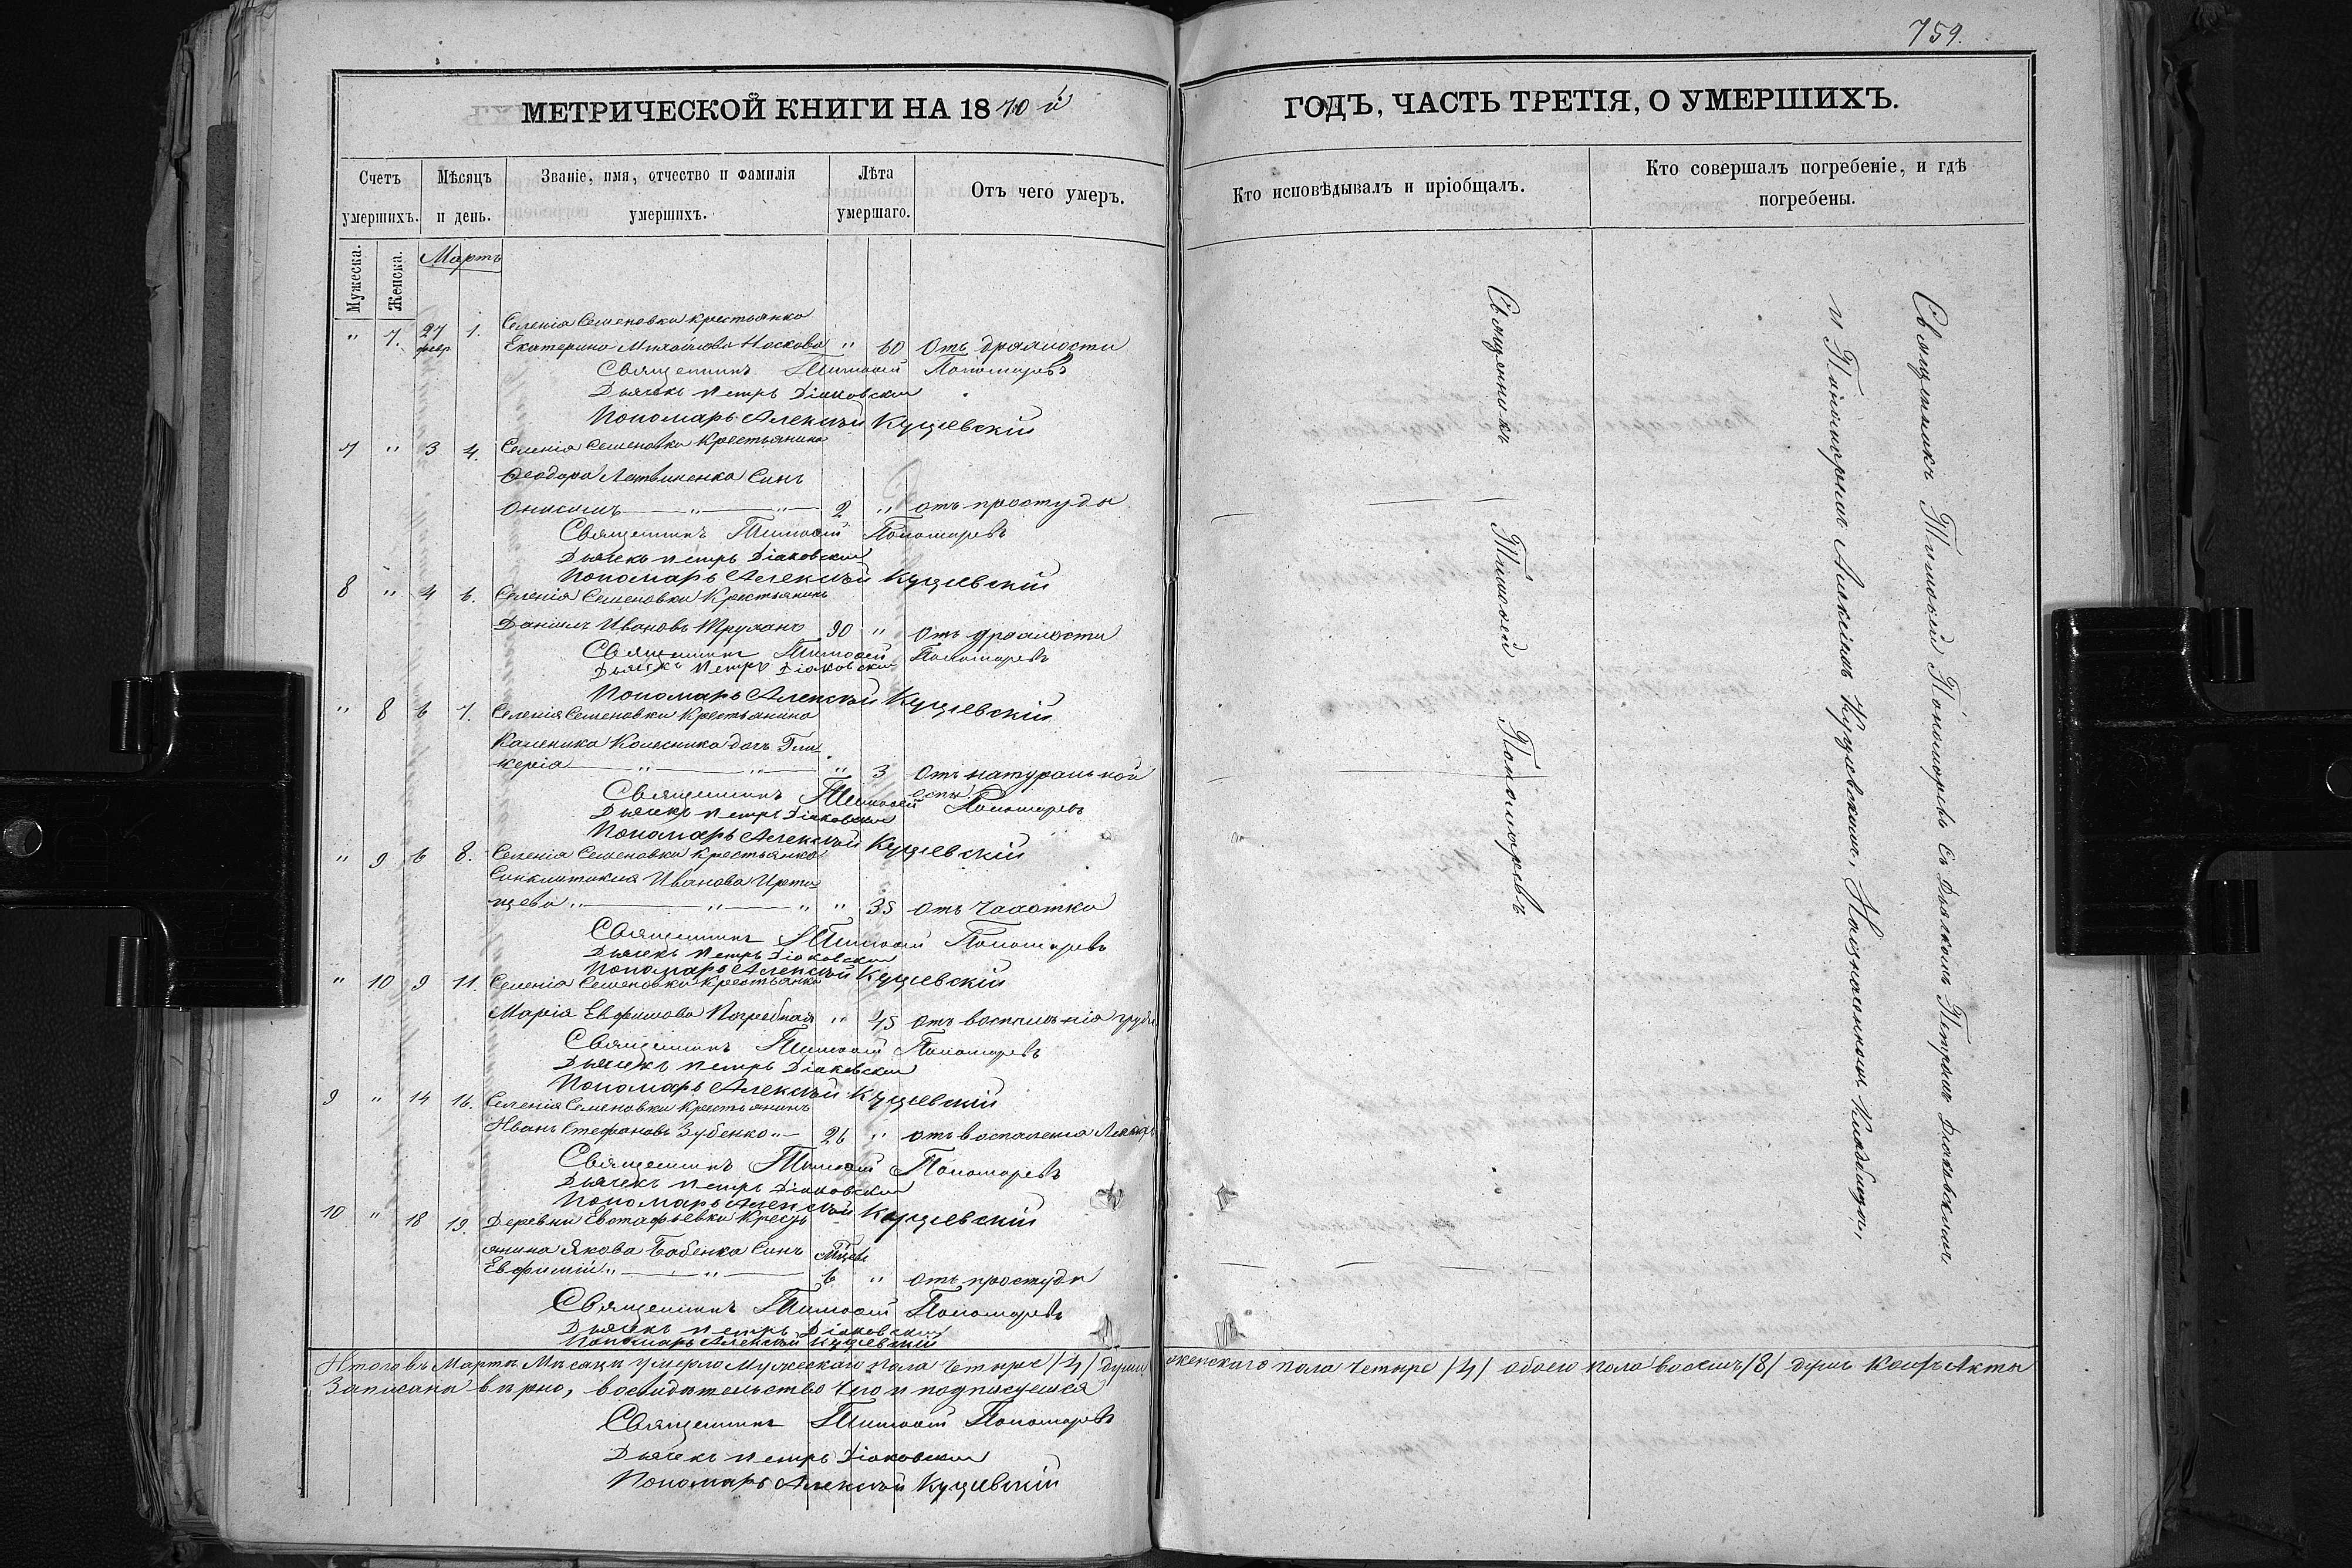 759.
МЕТРИЧЕСКОЙ КНИГИ НА 1870 й
ГОДЪ, ЧАСТЬ ТРЕТІЯ, О УМЕРШИХЪ.
Счетъ умершихъ.
Мѣсяцъ и день.
Званіе, имя, отчество и фамилія умершихъ.
Лѣта умершаго.
Отъ чего умеръ.
Кто исповѣдывалъ и пріобщалъ.
Кто совершалъ погребеніе, и гдѣ погребены.
Мужеска.
Женска.
Мартъ
" 7. 27 февр 1. Селенія Семеновки крестьянка
Екатерина Михайлова Носкова " 60 Отъ дряхлости
Священникъ Тимоѳей Пономаревъ
Дьячекъ Петръ Діаковскій
Пономарь Алексѣй Кущевскій
7 " 3 4. Селенія Семеновки Крестьянина
Ѳеодора Литвиненка Сынъ
Онисимъ " " 2 " отъ простуды
Священникъ Тимоѳей Пономаревъ
Дьячекъ Петръ Діаковскій
Пономарь Алексѣй Кущевскій
8 " 4 6. Селенія Семеновки Крестьянинъ
Даніилъ Ивановъ 90 " Отъ дряхлости
Священникъ Тимоѳей Пономаревъ
Дьячекъ Петръ Діаковскій
Пономарь Алексѣй Кущевскій
" 8 6 7. Селенія Семеновки Крестьянина
Каленика Колесника дочь Гли-
керія " " " 3 Отъ натуральной
оспы
Священникъ Тимоѳей Пономаревъ
Дьячекъ Петръ Діаковскій
Пономарь Алексѣй Кущевскій
" 9 6 8. Селенія Семеновки Крестьянка
Синклитикія Иванова Ирти-
щева " " " " 35 Отъ Чахотки
Священникъ Тимоѳей Пономаревъ
Дьячекъ Петръ Діаковскій
Пономарь Алексѣй Кущевскій
" 10 9 11. Селенія Семеновки Крестьянка
Марія Евфимова Погребная " 45 Отъ воспаленія груди
Священникъ Тимоѳей Пономаревъ
Дьячекъ Петръ Діаковскій
Пономарь Алексѣй Кущевскій
9 " 14 16. Селенія Семеновки Крестьянинъ
Иванъ Стефановъ Зубенко " 26 " отъ воспаленія
Священникъ Тимоѳей Пономаревъ
Дьячекъ Петръ Діаковскій
Пономарь Алексѣй Кущевскій
10 " 18 19. Деревни Евстафьевки Кресть-
янина Якова Бабенка Сынъ
Евфимій " " 6 " отъ простуды
Священникъ Тимоѳей Пономаревъ
Дьячекъ Петръ Діаковскій
Пономарь Алексѣй Кущевскій
Священникъ Тимоѳей Пономаревъ
Священникъ Тимоѳей Пономаревъ съ Дьячкомъ Петромъ Діаковскимъ
и Пономаремъ Алексѣемъ Кущевскимъ, На кладбищѣ,
Итого въ Мартѣ Мѣсяцѣ умерло Мужескаго пола Четыре /4/ души женскаго пола Четыре /4/ обоего пола восемь /8/ душъ Акты
Записаны вѣрно, во свидѣтельство чего и подписуемся
Священникъ Тимоѳей Пономаревъ
Дьячекъ Петръ Діаковскій
Пономарь Алексѣй Кущевскій